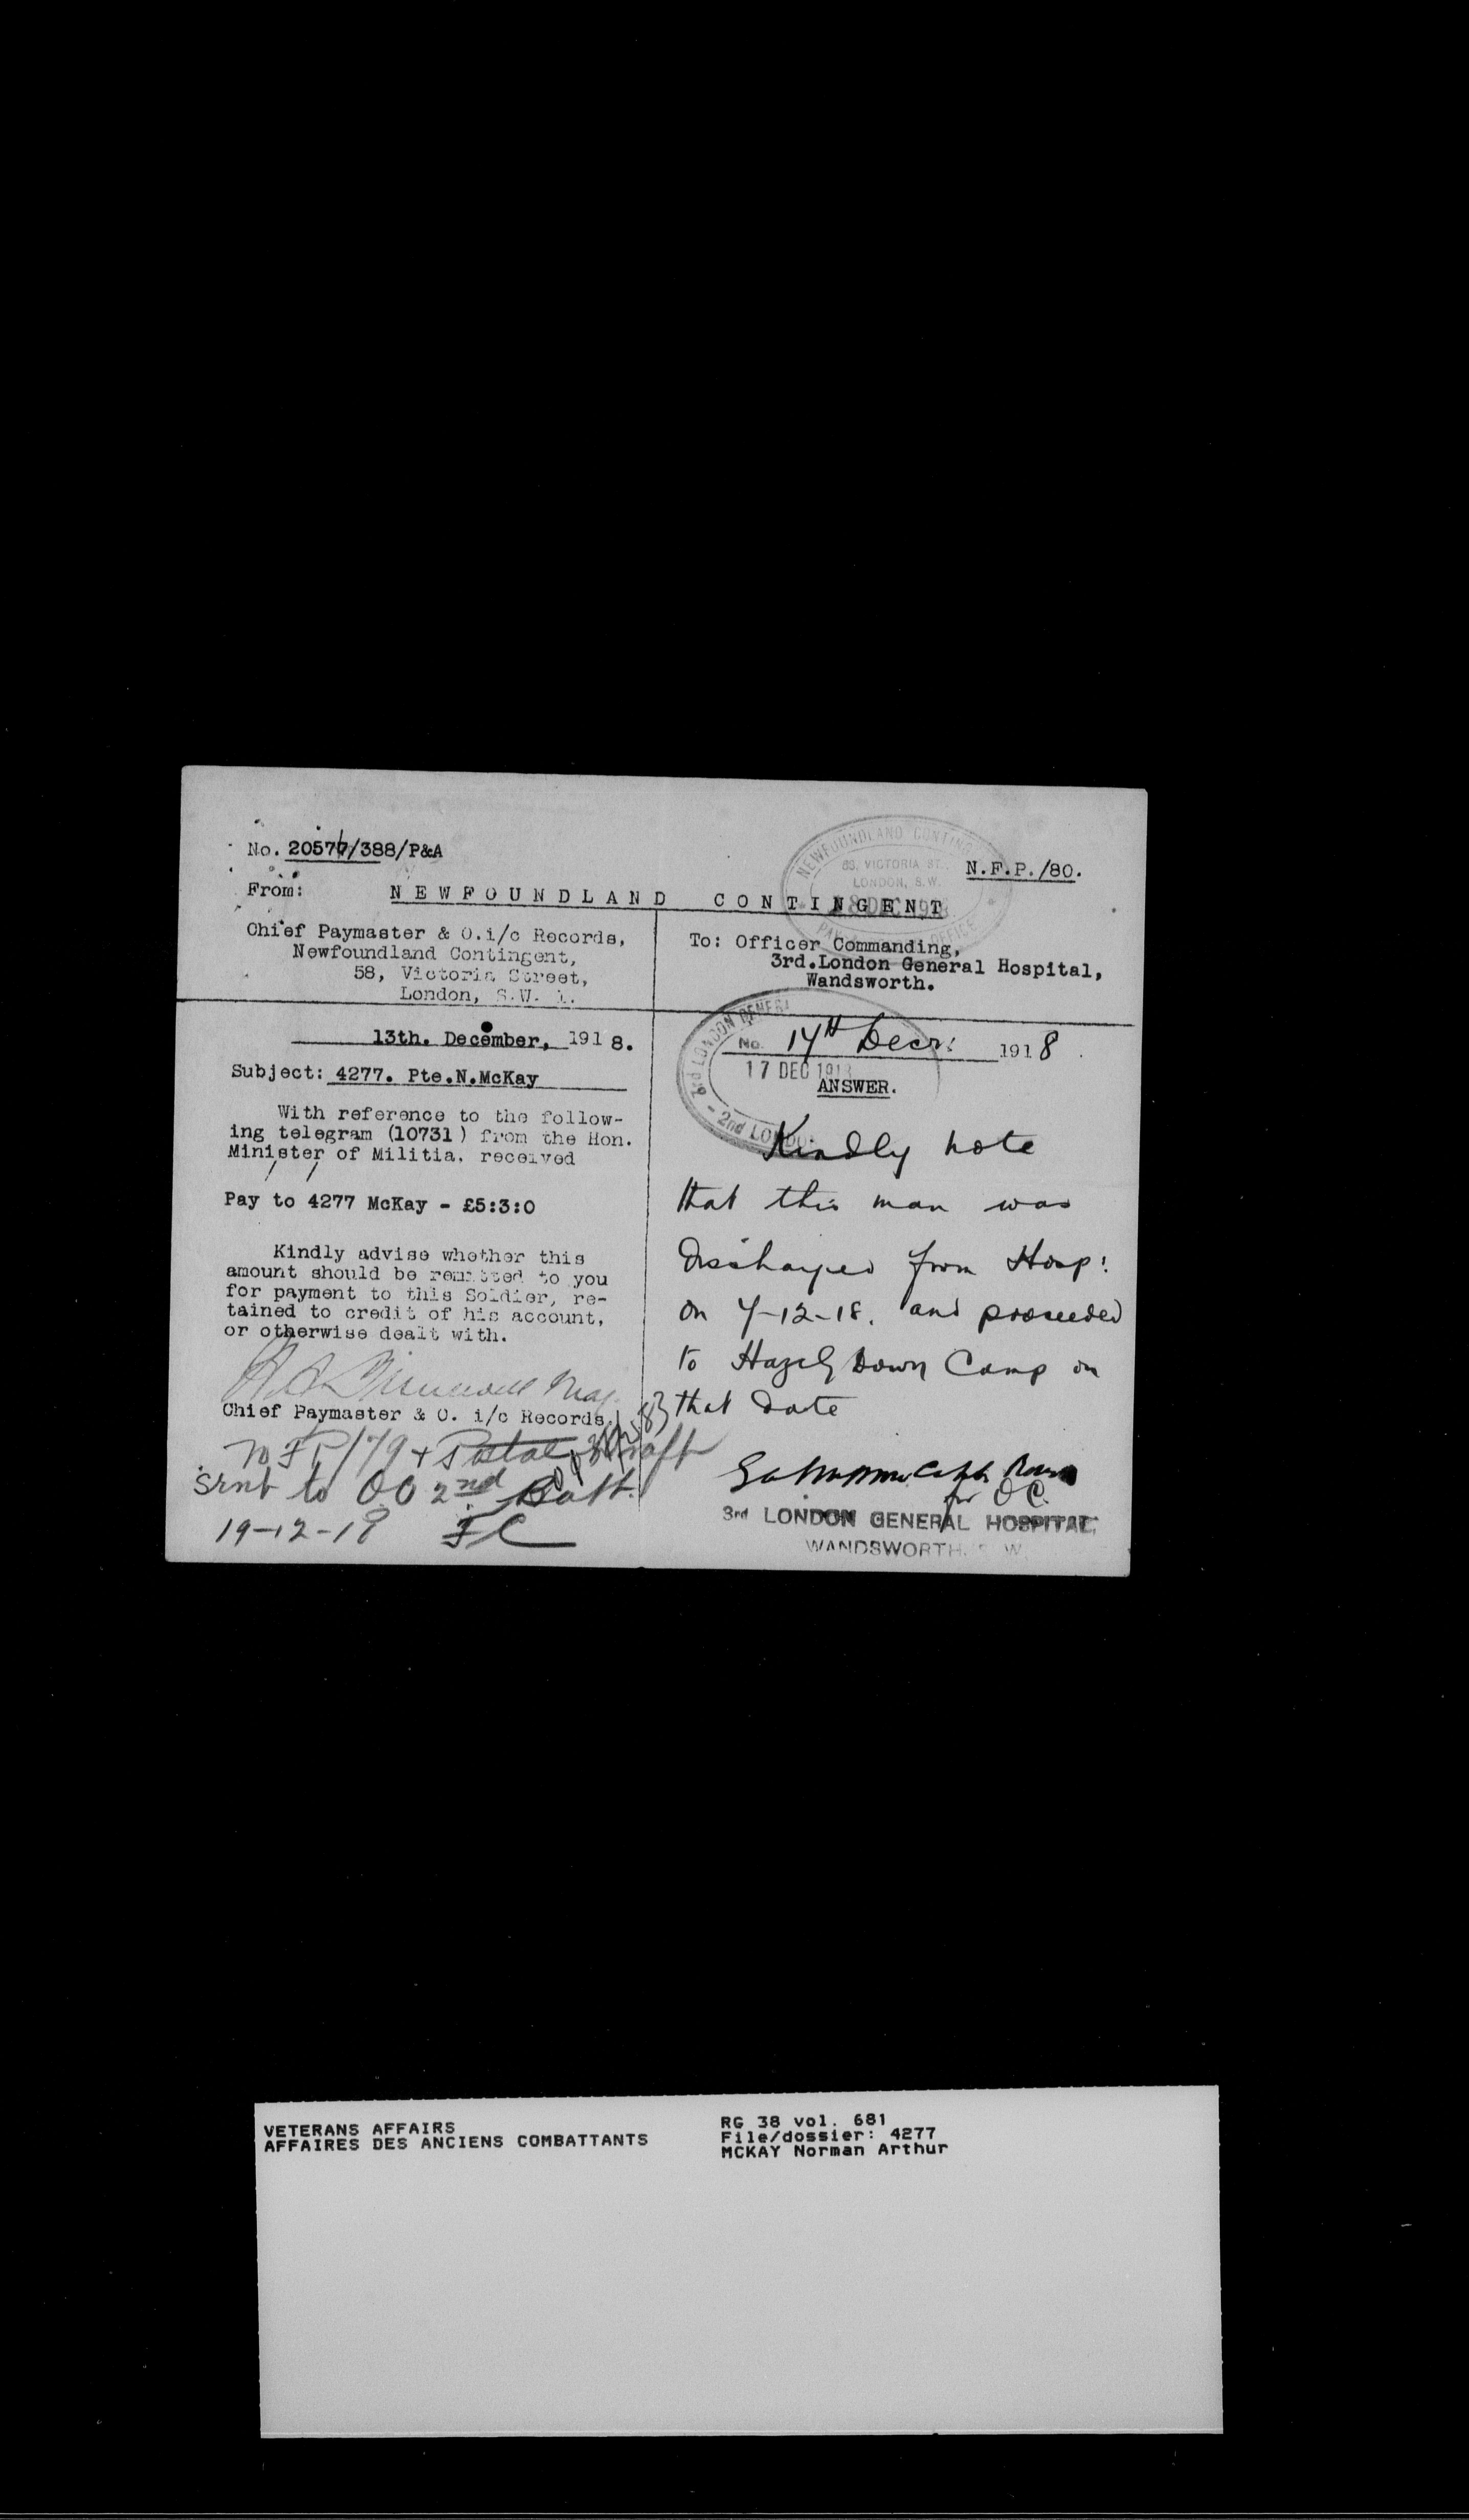 No. 20576/388/P&A
N.F.P./80.
From:
NEWFOUNDLAND CONTINGENT
NEWFOUNDLAND CONTING
VICTORIA ST.
LONDON, S.W.
DEC 1918
PAY OFFICE
Chief Paymaster & O.i/c Records,
Newfoundland Contingent,
58, Victoria Street,
London, S.W. 1.
To: Officer Commanding,
3rd.London General Hospital,
Wandsworth.
13th. December, 1918.
Subject: 4277. Pte.N.McKay
With reference to the follow-
ing telegram (10731) from the Hon.
Minister of Militia, received
Pay to 4277 McKay - £5:3:0
Kindly advise whether this
amount should be remitted to you
for payment to this Soldier, re-
tained to credit of his account,
or otherwise dealt with.
Maj.
Chief Paymaster & O. i/c Records.
NFP/79 + Postal Draft
Sent to OC 2nd Batt.
19-12-18 FC
3rd LONDON GENERA
No. 17th Decr: 1918.
17 DEC 1918
ANSWER.
2nd LONDON
Kindly note
that this man was
discharged from Hosp:
on 7-12-18. and proceeded
to Hazely Down Camp on
that date
for OC.
3rd LONDON GENERAL HOSPITAL.
WANDSWORTH. S W
VETERANS AFFAIRS
AFFAIRES DES ANCIENS COMBATTANTS
RG 38 vol. 681
File/dossier: 4277
MCKAY Norman Arthur